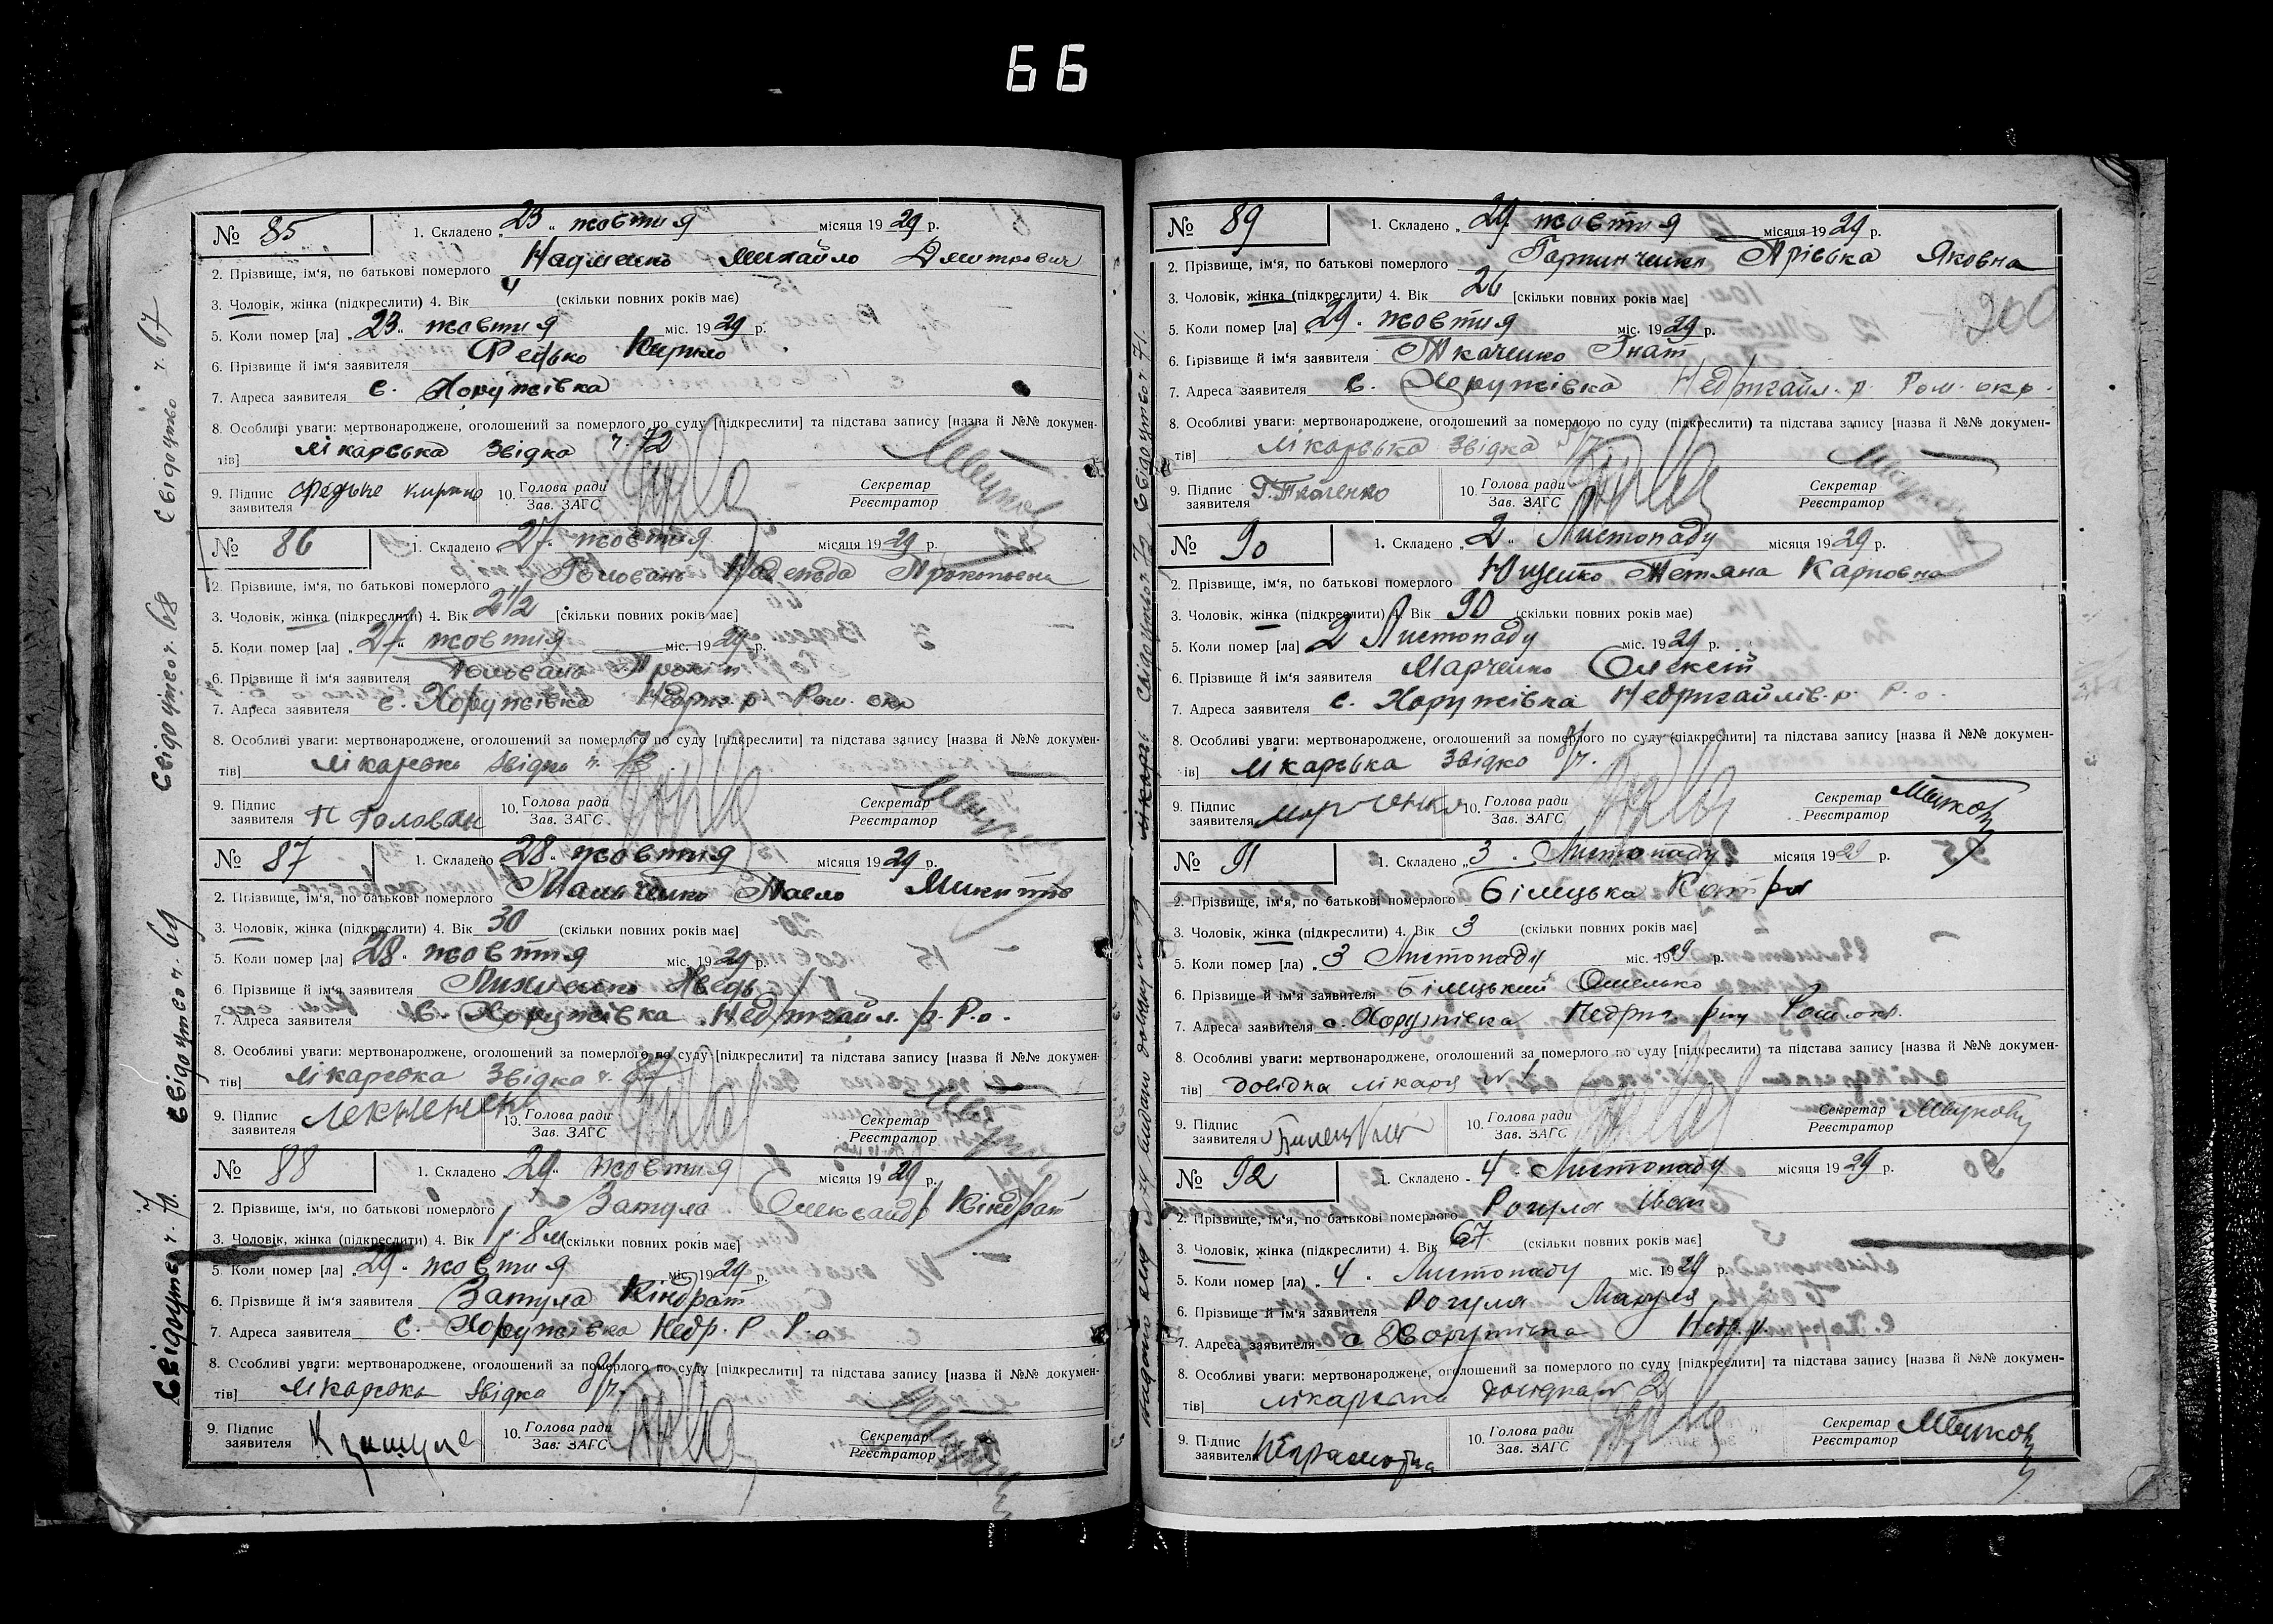 66
№ 85
1. Складено „23“ жовтня місяця 1929 р.
2. Прізвище, ім'я, по батькові померлого Михайло Дмитрович
3. Чоловік, жінка (підкреслити) 4. Вік 4 (скільки повних років має)
5. Коли помер [ла] „23“ жовтня міс. 1929 р.
6. Прізвище й ім'я заявителя Федько Кирило
7. Адреса заявителя с. Хоружівка
8. Особливі уваги: мертвонароджене, оголошений за померлого по суду [підкреслити] та підстава запису [назва й №№ докумен-
тів] лікарська звідка ч. 72
9. Підпис заявителя Федько Кирило 10. Голова ради Зав. ЗАГС Секретар Реєстратор
№ 86
1. Складено „27“ жовтня місяця 1929 р.
2. Прізвище, ім'я, по батькові померлого Головань Надежда Прокоповна
3. Чоловік, жінка (підкреслити) 4. Вік 2 1/2 [скільки повних років має]
5. Коли помер [ла] „27“ жовтня міс. 1929 р.
6. Прізвище й ім'я заявителя Головань Прокіп
7. Адреса заявителя с. Хоружівка Недриг. р. Ром. окр
8. Особливі уваги: мертвонароджене, оголошений за померлого по суду [підкреслити] та підстава запису [назва й №№ докумен-
тів] лікарська звідка ч. 78
9. Підпис заявителя П Головань 10. Голова ради Зав. ЗАГС Секретар Реєстратор
№ 87
1. Складено „28“ жовтня місяця 1929 р.
2. Прізвище, ім'я, по батькові померлого Павло Микитов
3. Чоловік, жінка (підкреслити) 4. Вік 30 (скільки повних років має]
5. Коли помер [ла] „28“ жовтня міс. 1929 р.
6. Прізвище й ім'я заявителя
7. Адреса заявителя с. Хоружівка Недригайл. р. Р.о.
8. Особливі уваги: мертвонароджене, оголошений за померлого по суду [підкреслити] та підстава запису [назва й №№ докумен-
тів] лікарська звідка ч. 87
9. Підпис заявителя 10. Голова ради Зав. ЗАГС Секретар Реєстратор
№ 88
1. Складено „29“ жовтня місяця 1929 р.
2. Прізвище, ім'я, по батькові померлого Затула Олександр Кіндрат
3. Чоловік, жінка (підкреслити) 4. Вік 1 р 8 м (скільки повних років має]
5. Коли помер [ла] „29“ жовтня міс. 1929 р.
6. Прізвище й ім'я заявителя Затула Кіндрат
7. Адреса заявителя с. Хоружівка Недр. Р Р.о
8. Особливі уваги: мертвонароджене, оголошений за померлого по суду [підкреслити] та підстава запису [назва й №№ докумен-
тів] лікарська звідка б/ч.
9. Підпис заявителя К Затула 10. Голова ради Зав. ЗАГС Секретар Реєстратор
Свідоцтво ч. 67
Свідоцтво ч. 68
Свідоцтво ч. 69
Свідоцтво ч. 70.
№ 89
1. Складено „29“ жовтня місяця 1929 р.
2. Прізвище, ім'я, по батькові померлого Яковна
3. Чоловік, жінка (підкреслити) 4. Вік 26 [скільки повних років має]
200
5. Коли помер [ла] „29“ жовтня міс. 1929 р.
6. Прізвище й ім'я заявителя Ткаченко Гнат
7. Адреса заявителя с. Хоружівка Недригайл. р. Ром. окр.
8. Особливі уваги: мертвонароджене, оголошений за померлого по суду (підкреслити) та підстава запису [назва й №№ докумен-
тів] лікарська звідка б/ч
9. Підпис заявителя Г. Ткаченко 10. Голова ради Зав. ЗАГС Секретар Реєстратор
№ 90
1. Складено „2“ Листопаду місяця 1929 р.
2. Прізвище, ім'я, по батькові померлого Ющенко Тетяна Карповна
3. Чоловік, жінка (підкреслити) 4. Вік 90 (скільки повних років має)
5. Коли помер [ла] 2 Листопаду міс. 1929 р.
6. Прізвище й ім'я заявителя Марченко Олексій
7. Адреса заявителя с. Хоружівка Недригайлів. р. Р.о.
8. Особливі уваги: мертвонароджене, оголошений за померлого по суду (підкреслити] та підстава запису [назва й №№ докумен-
тів] лікарська звідка б/ч.
9. Підпис заявителя Марченко 10. Голова ради Зав. ЗАГС Секретар Реєстратор
№ 91
1. Складено „3“ Листопаду місяця 1929 р.
2. Прізвище, ім'я, по батькові померлого Білецька Катря
3. Чоловік, жінка (підкреслити) 4. Вік 3 (скільки повних років має]
5. Коли помер [ла) „3 Листопаду міс. 1929 р.
6. Прізвище й ім'я заявителя Білецький Омелько
7. Адреса заявителя с. Хоружівка Недриг. р-ну Ром. окр.
8. Особливі уваги: мертвонароджене, оголошений за померлого по суду [підкреслити) та підстава запису [назва й №№ докумен-
тів] довідка лікаря № 1
9. Підпис заявителя 10. Голова ради Зав. ЗАГС Секретар Реєстратор
№ 92
1. Складено „4“ Листопаду місяця 1929 р.
2. Прізвище, ім'я, по батькові померлого Рогуля Іван
3. Чоловік, жінка (підкреслити) 4. Вік 67 (скільки повних років має]
5. Коли помер [ла) „4“ Листопаду міс. 1929 р.
6. Прізвище й ім'я заявителя Рогуля Маруся
7. Адреса заявителя с Хоружівка Недр. р.
8. Особливі уваги: мертвонароджене, оголошений за померлого по суду [підкреслити] та підстава запису [назва й №№ докумен-
тів] лікарська довідка № 2
9. Підпис заявителя Неграмотна 10. Голова ради Зав. ЗАГС Секретар Реєстратор